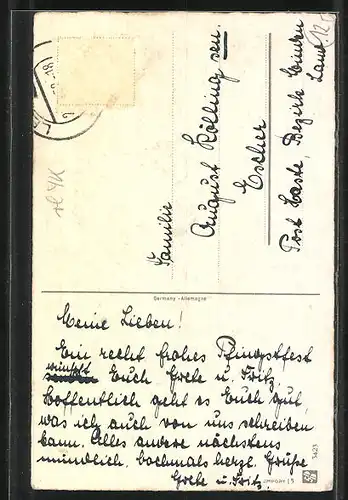 Meine Lieben!
Ein recht frohes Pfingstfest
wünscht
Euch Grete u. Fritz.
Hoffentlich geht es Euch gut,
was ich auch von uns schreiben
kann. Alles andere nächstens
mündlich. Nochmals herzl. Grüße
Grete u. Fritz.
Familie
August Kölling sen.
Escher
Post Haste, Bezirk
Land
Germany - Allemagne
3423